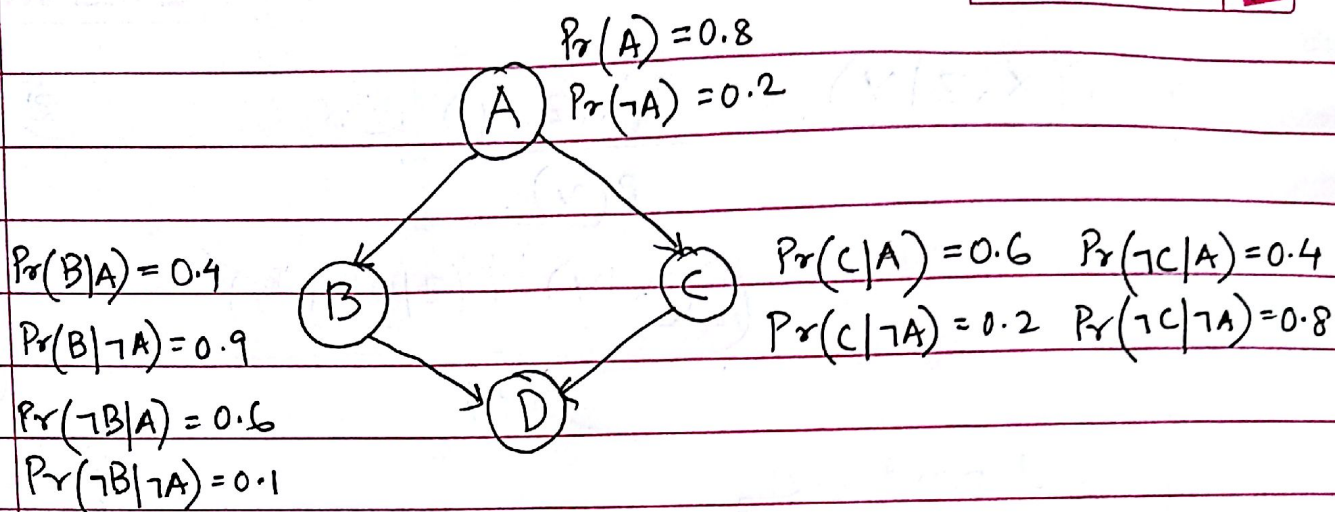 Pr(A) = 0.8
A Pr(¬A) = 0.2
Pr(B|A) = 0.4
Pr(B|¬A) = 0.9
Pr(¬B|A) = 0.6
Pr(¬B|¬A) = 0.1
B
C
Pr(C|A) = 0.6 Pr(¬C|A) = 0.4
Pr(C|¬A) = 0.2 Pr(¬C|¬A) = 0.8
D